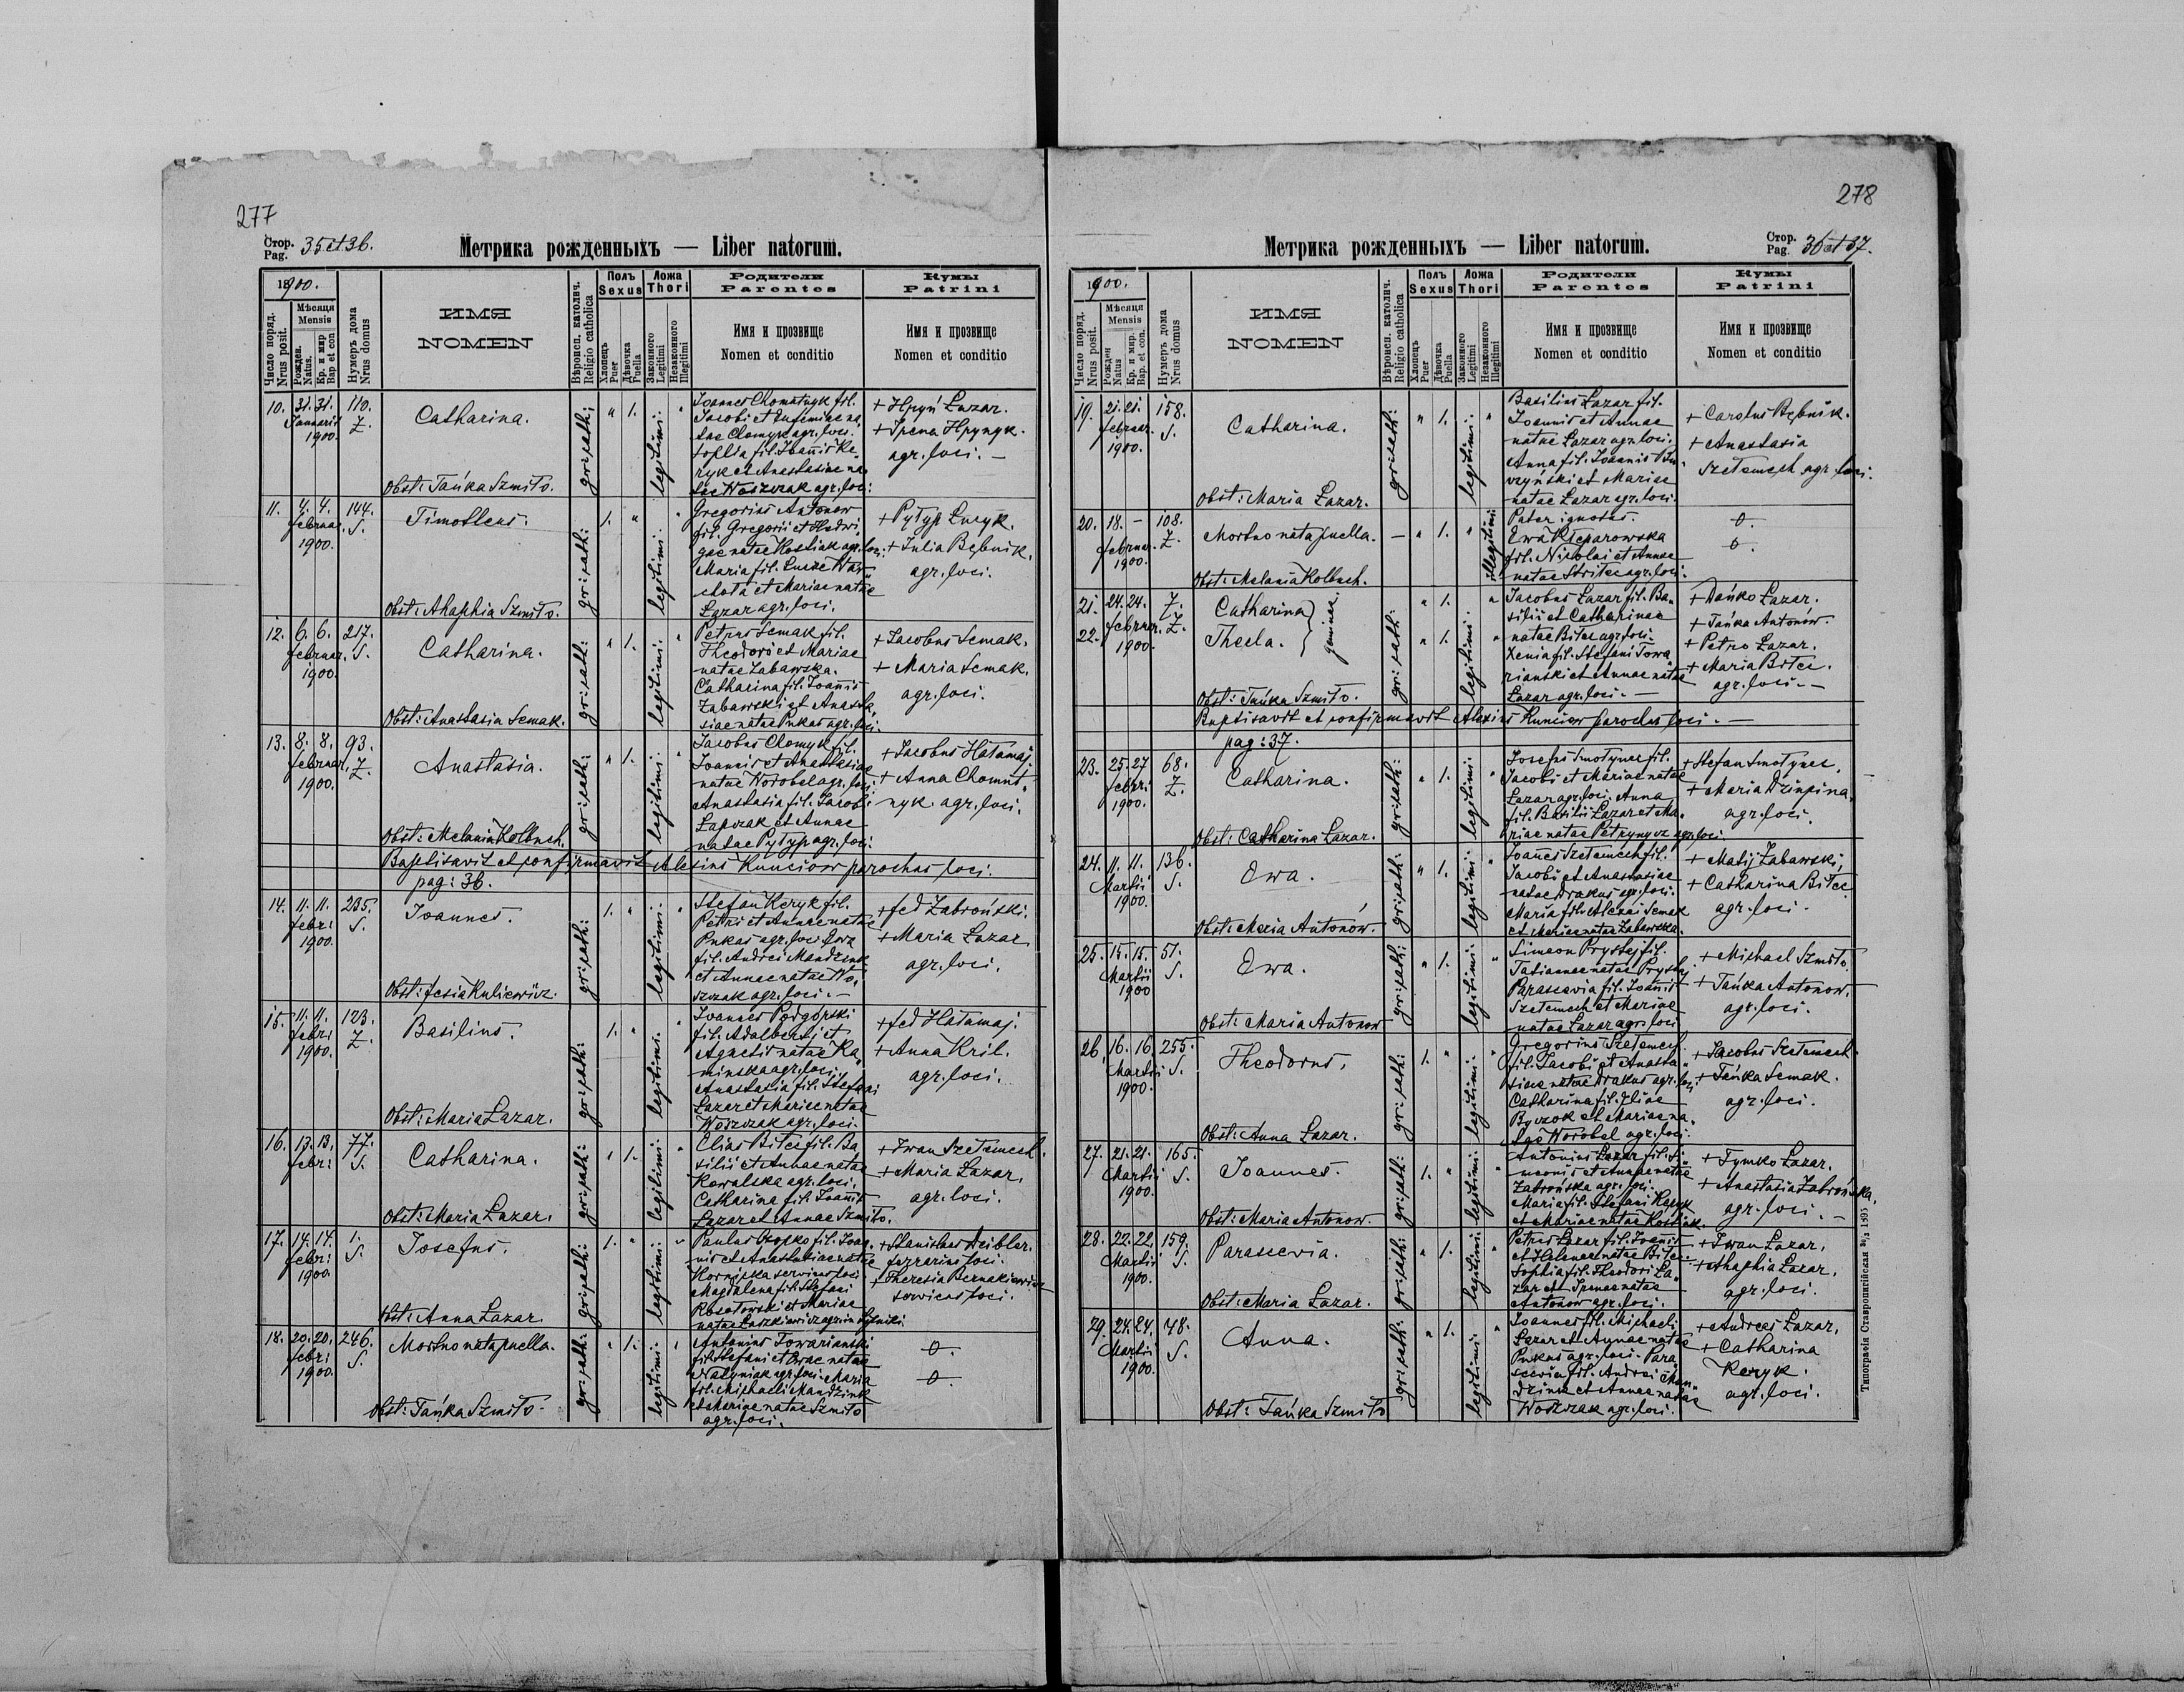 277
Стор. Pag. 35 et 36.
Метрика рожденныхъ — Liber natorum.
1900.
Число поряд. Nrus posit.
Мѣсяця Mensis
Рожден. Natus.
Кр. и мир Bap et con
Нумеръ дома Nrus domus
ИМЯ
NOMEN
Вѣроисп. католич. Religio catholica
Полъ Sexus
Хлопець Puer
Дѣвочка Puella
Ложа Thori
Законного Legitimi
Незаконного Illegitimi
Родители
Parentes
Имя и прозвище
Nomen et conditio
Кумы
Patrini
Имя и прозвище
Nomen et conditio
10. 31. 31. Januarii 1900. 110. Z.
Catharina.
Obst: Tańka Szmiło.
gr: cath: " 1. legitimi. "
Joannes Chomutnyk fil.
Jacobi et Eufemiae na,
tae Chomyk agr. loci.
Sophia fil. Joannis Ke,
ryk et Anastasiae na,
tae Woszczak agr. loci:
+ Hpyń Lazar.
+ Ipena Hpynyk.
agr. loci. —
11. 4. 4. februar. 1900. 144. S.
Timotheus.
Obst: Ahaphia Szmiło.
gr: cath: 1. " legitimi. "
Gregorius Antonow
fil. Gregorii et Hedwi,
gae natae Kostiak agr. loci.
Maria fil. Lucae War,
chota et Mariae natae
Lazar agr. loci.
+ Pyłyp Lucyk.
+ Julia Bębnik.
agr. loci.
12. 6. 6. februar. 1900. 217. S.
Catharina.
Obst: Anastasia Semak.
gr: cath: " 1. legitimi. "
Petrus Semak fil.
Theodori et Mariae
natae Zabawska.
Catharina fil. Joannis
Zabawski et Anasta,
siae natae Pukas agr. loci.
+ Jacobus Semak.
+ Maria Semak.
agr. loci.
13. 8. 8. februar. 1900. 93. Z.
Anastasia.
Obst: Melania Kolbuch.
gr: cath: " 1. legitimi. "
Jacobus Chomyk fil.
Joannis et Anastasiae
natae Worobel agr. loci.
Anastasia fil. Jacobi
Lapczak et Annae
natae Pyłyp agr. loci.
+ Jacobus Hałamaj.
+ Anna Chomut,
nyk. agr. loci.
Baptisavit et confirmavit Alexius Kunciow parochus loci.
pag: 36.
14. 11. 11. febri 1900. 235. S.
Joannes.
Obst: fesia Kuliewicz.
gr: cath: 1. " legitimi. "
Stefan Keryk fil.
Petri et Annae natae
Pukas agr. loci. Ewa
fil. Andrei Mandzink
et Annae natae Wo,
szczak agr. loci. —
+ fed Zabroński.
+ Maria Lazar
agr. loci.
15. 11. 11. febri 1900. 123. Z.
Basilius.
Obst: Maria Lazar.
gr: cath: 1. " legitimi. "
Joannes Podgorski
fil. Adalberti et
Agnetis natae Ka,
minska agr. loci.
Anastasia fil. Stefani
Lazar et Mariae natae
Woszczak agr. loci.
+ fed Hałamaj.
+ Anna Kril.
agr. loci.
16. 13. 13. febri 77. S.
Catharina.
Obst: Maria Lazar.
gr: cath: " 1. legitimi. "
Elias Bitei fil. Ba,
silii et Annae natae
Kowalska agr. loci.
Catharina fil. Joannis
Lazar et Annae Szmiło.
+ Iwan Szełemech.
+ Maria Lazar.
agr. loci.
17. 14. 14. febri 1900. 1. S.
Josefus.
Obst: Anna Lazar.
gr: cath: 1. " legitimi. "
Paulus fil. Joan,
nis et Anastasiae natae
serviens loci.
Magdalena fil. Stefani
et Mariae
natae
+ Stanislaus
loci.
+ Theresia Bernakiewicz
serviens loci.
18. 20. 20. febri 1900. 246. S.
Mortuo nata puella.
Obst: Tańka Szmiło.
gr: cath: " 1. legitimi. "
Antonius Towarianski
fil. Stefani et Evae natae
agr. loci. Maria
fil. Michaeli Mandzink
et Mariae natae Szmiło
agr. loci.
0.
0.
278
Стор. Pag. 36 et 37.
Метрика рожденныхъ — Liber natorum.
1900.
Число поряд. Nrus posit.
Мѣсяця Mensis
Рожден Natus
Кр. и мир. Bap. et con.
Нумеръ дома Nrus domus
ИМЯ
NOMEN
Вѣроисп. католич. Religio catholica
Полъ Sexus
Хлопець Puer
Дѣвочка Puella
Ложа Thori
Законного Legitimi
Незаконного Illegitimi
Родители
Parentes
Имя и прозвище
Nomen et conditio
Кумы
Patrini
Имя и прозвище
Nomen et conditio
19. 21. 21. februar. 1900. 158. S.
Catharina.
Obst: Maria Lazar.
gr: cath: " 1. legitimi. "
Basilius Lazar fil.
Joannis et Annae
natae Lazar agr. loci.
Anna fil. Joannis
et Mariae
natae Lazar agr. loci.
+ Carolus Bębnik.
+ Anastasia
Szełemech agr. loci.
20. 18. — februar. 1900. 108. Z.
Mortuo nata puella.
Obst: Melania Kolbuch.
— " 1. " illegitimi
Pater ignotus.
Ewa Kleparowska
fil. Nikolai et Annae
natae Stritec agr. loci.
0.
0.
21. 22. 24. 24. februar. 1900. 7. Z.
Catharina
Thecla. } geminae
Obst: Tańka Szmiło.
gr: cath: " 1. " 1. legitimi. "
Jacobus Lazar fil. Ba,
silii et Catharinae
natae Bitei agr. loci.
Xenia fil. Stefani Towa,
rianski et Annae natae
Lazar agr. loci. —
+ Dańko Lazar.
+ Tańka Antonów.
+ Petro Lazar.
+ Maria Bitei.
agr. loci. —
Baptisavit et confirmavit Alexius Kunciow parochus loci. —
pag: 37.
23. 25. 27 febri 1900. 68. Z.
Catharina.
Obst: Catharina Lazar.
gr: cath: " 1. legitimi. "
Josefus Smołynec fil.
Jacobi et Mariae natae
Lazar agr. loci. Anna
fil. Basilii Lazar et Ma,
riae natae Petrynycz agr. loci.
+ Stefan Smołynec.
+ Maria Dzinpina.
agr. loci.
24. 11. 11. Martii 1900. 136. S.
Ewa.
Obst: Maria Antonów.
gr: cath: " 1. legitimi. "
Joannes Szełemech fil.
Jacobi et Anastasiae
natae Drakus agr. loci.
Maria fil. Alexai Semak
et Mariae natae Zabawska.
+ Matij Zabawski,
+ Catharina Bitei
agr. loci.
25. 15. 15. Martii 1900 51. S.
Ewa.
Obst: Maria Antonow
gr: cath: " 1. legitimi. "
Simeon Prystaj fil.
Tatianae natae Prystaj
Parascevia fil. Joannis
Szełemech et Mariae
natae Lazar agr. loci
+ Michael Szmiło.
+ Tańka Antonow.
agr. loci.
26. 16. 16. Martii 1900. 255. S.
Theodorus.
Obst: Anna Lazar.
gr: cath: 1. " legitimi. "
Gregorius Szełemech
fil. Jacobi et Anasta,
siae natae Drakus agr. loci
Catharina fil. Eliae
Byczok et Mariae na,
tae Worobel agr. loci.
+ Jacobus Szełemech.
+ Tańka Semak.
agr. loci.
27. 21. 21. Martii 1900. 165. S.
Joannes.
Obst: Maria Antonow.
gr: cath: 1. " legitimi. "
Antonius Lazar fil. Si,
meonis et Annae natae
Zabrońska agr. loci.
Maria fil. Stefani
et Mariae natae Kostiak.
+ Tymko Lazar.
+ Anastasia Zabrońska.
agr. loci. —
28. 22. 22. Martii 1900. 159. S.
Parascevia.
Obst: Maria Lazar.
gr: cath: " 1. legitimi. "
Petrus Lazar fil. Joannis
et Helenae natae Bitei.
Sophia fil. Theodori La,
zar et Irenae natae
Antonow agr. loci.
+ Iwan Lazar.
+ Ahaphia Lazar.
agr. loci.
29. 24. 24. Martii 1900. 78. S.
Anna.
Obst: Tańka Szmiło
gr: cath: " 1. legitimi. "
Joannes fil. Michaeli
Lazar et Annae natae
Pukas agr. loci. Para,
scevia fil. Andrei Man,
dzink et Annae natae
Woszczak agr. loci.
+ Andreas Lazar.
+ Catharina
Keryk.
agr. loci.
Типографія Ставропигійская